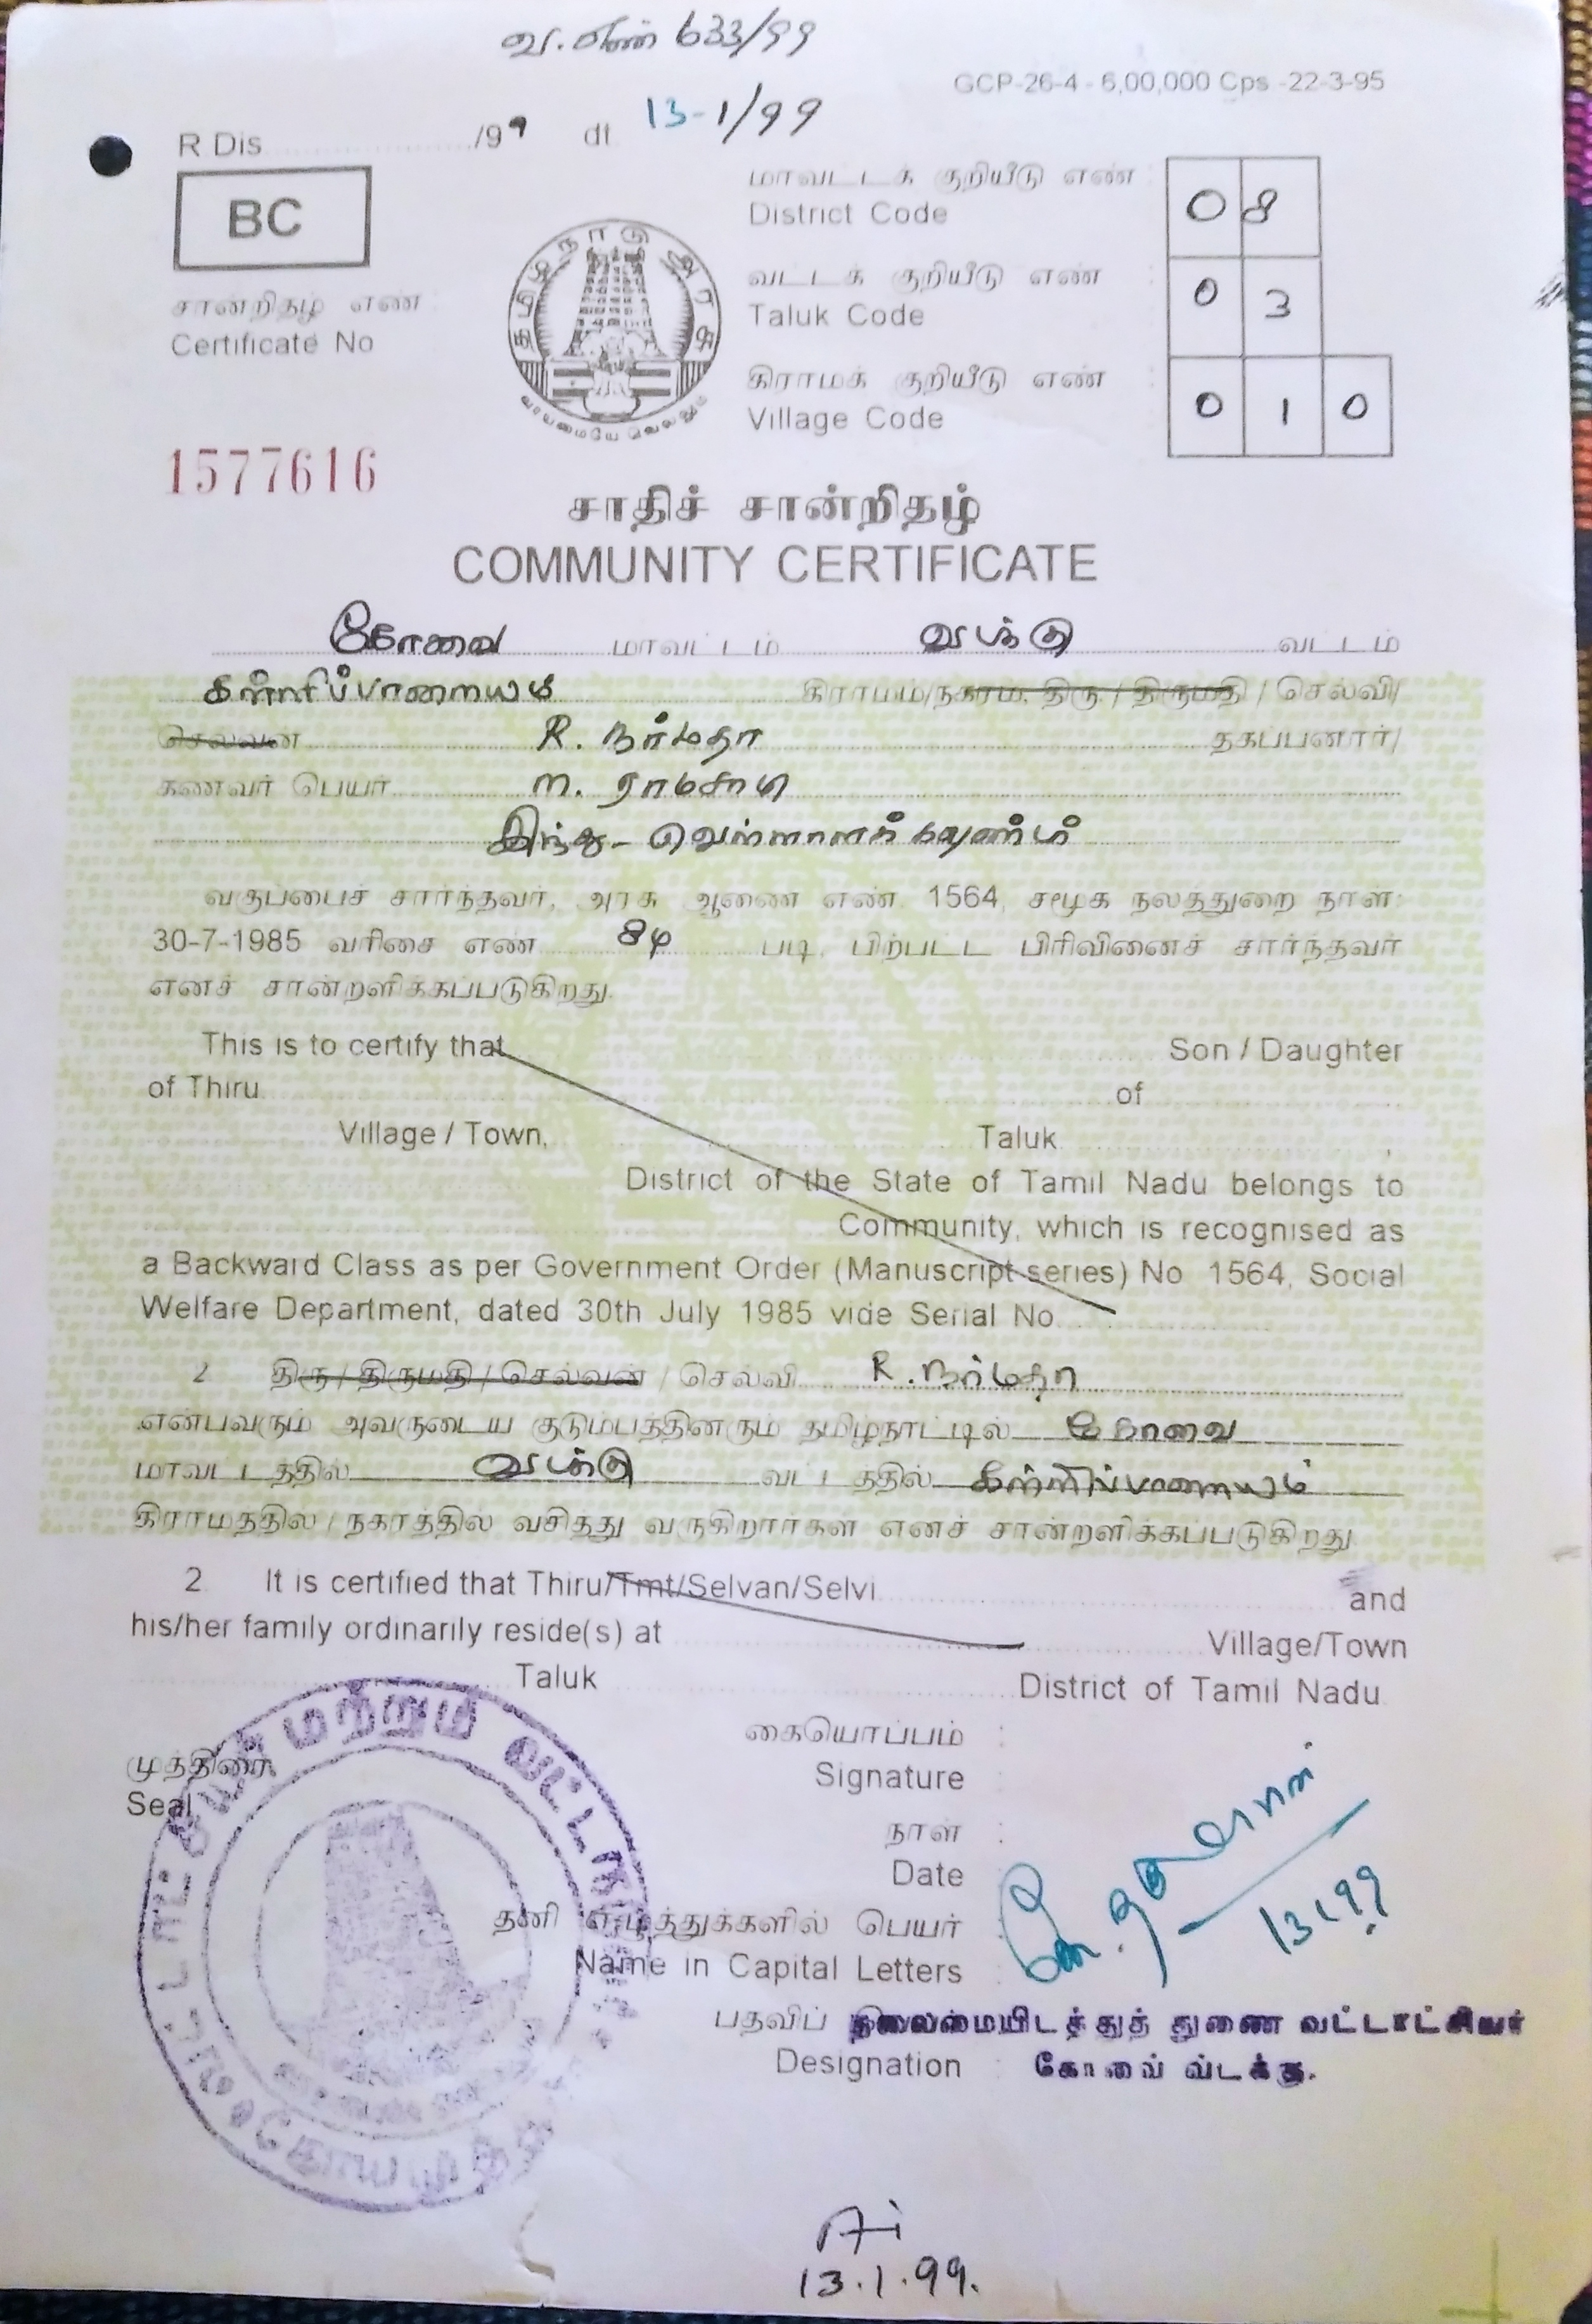 வ. எண் 633/99
GCP-26-4 - 6,00,000 Cps -22-3-95
R Dis ............ /99 dt 13-1/99
BC
மாவட்டக் குறியீடு எண் :
District Code
08
தமிழ்நாடு அரசு
வாய்மையே வெல்லும்
சான்றிதழ் எண் :
Certificate No
வட்டக் குறியீடு எண் :
Taluk Code
03
கிராமக் குறியீடு எண் :
Village Code
010
1577616
சாதிச் சான்றிதழ்
COMMUNITY CERTIFICATE
கோவை மாவட்டம் வடக்கு வட்டம்
கள்ளிப்பாளையம் கிராமம்/நகரம், திரு / திருமதி / செல்வி/
செல்வன் R. நர்மதா தகப்பனார்/
கணவர் பெயர் M. ராமசாமி
இந்து - வெள்ளாளக் கவுண்டர்
வகுப்பைச் சார்ந்தவர், அரசு ஆணை எண். 1564, சமூக நலத்துறை நாள்:
30-7-1985 வரிசை எண் 84 படி, பிற்பட்ட பிரிவினைச் சார்ந்தவர்
எனச் சான்றளிக்கப்படுகிறது.
This is to certify that Son / Daughter
of Thiru of
Village / Town, Taluk ,
District of the State of Tamil Nadu belongs to
Community, which is recognised as
a Backward Class as per Government Order (Manuscript series) No 1564, Social
Welfare Department, dated 30th July 1985 vide Serial No
2 திரு / திருமதி / செல்வன் / செல்வி R. நர்மதா
என்பவரும் அவருடைய குடும்பத்தினரும் தமிழ்நாட்டில் கோவை
மாவட்டத்தில் வடக்கு வட்டத்தில் கள்ளிப்பாளையம்
கிராமத்தில் / நகரத்தில் வசித்து வருகிறார்கள் எனச் சான்றளிக்கப்படுகிறது.
2. It is certified that Thiru/Tmt/Selvan/Selvi and
his/her family ordinarily reside(s) at Village/Town
Taluk District of Tamil Nadu
கையொப்பம் :
Signature
முத்திரை
Seal
நாள் :
Date
13.1.99
தனி எழுத்துக்களில் பெயர்
Name in Capital Letters :
பதவிப் தலைமையிடத்துத் துணை வட்டாட்சியர்
Designation : கோவை வடக்கு.
மற்றும் வட்டா
13.1.99.